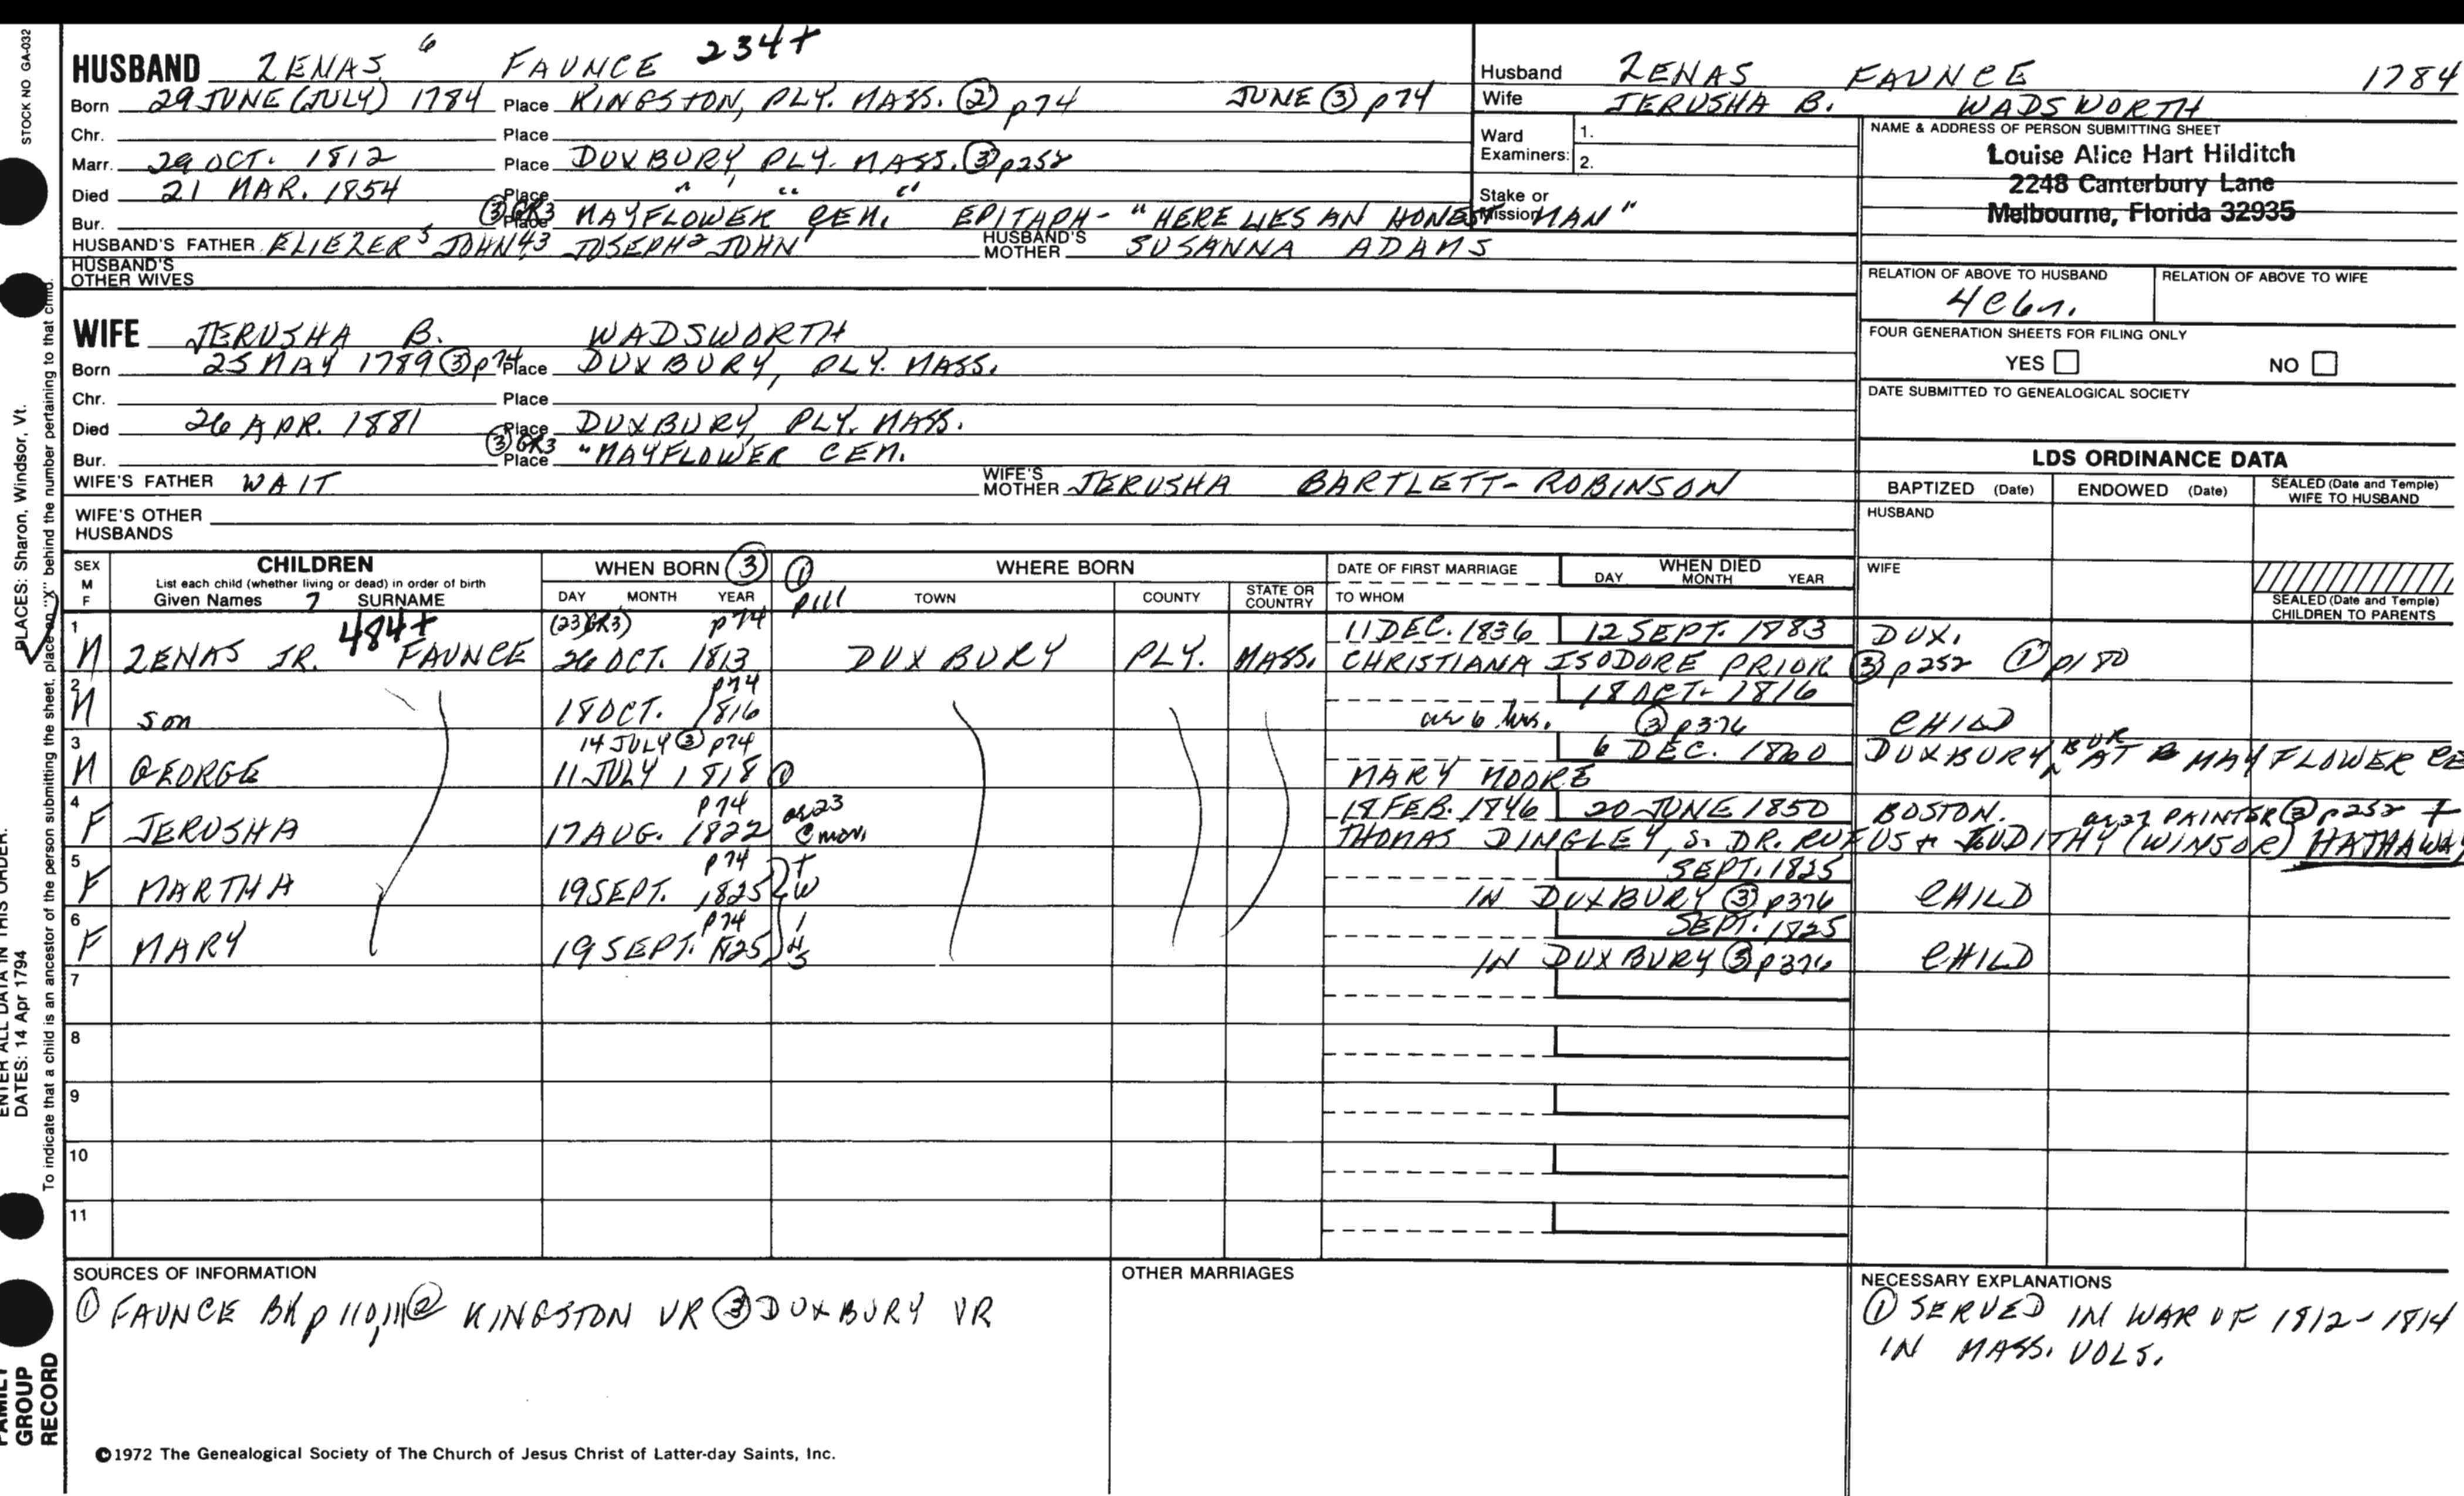 STOCK NO GA-032
HUSBAND ZENAS 6 FAUNCE 234+
Born 29 JUNE (JULY) 1784 Place KINGSTON, PLY. MASS. ② p74 JUNE ③ p74
Chr. Place
Marr. 29 OCT. 1812 Place DUXBURY PLY. MASS. ③ p252
Died 21 MAR. 1854 Place " " "
Bur. ③ GR3 Place MAYFLOWER CEM. EPITAPH - "HERE LIES AN HONEST MAN"
HUSBAND'S FATHER ELIEZER 5 JOHN 43 JOSEPH 2 JOHN 1 HUSBAND'S MOTHER SUSANNA ADAMS
HUSBAND'S OTHER WIVES
Husband ZENAS FAUNCE 1784
Wife JERUSHA B. WADSWORTH
Ward Examiners: 1.
2.
Stake or Mission
NAME & ADDRESS OF PERSON SUBMITTING SHEET
Louise Alice Hart Hilditch
2248 Canterbury Lane
Melbourne, Florida 32935
RELATION OF ABOVE TO HUSBAND RELATION OF ABOVE TO WIFE
FOUR GENERATION SHEETS FOR FILING ONLY
YES NO
DATE SUBMITTED TO GENEALOGICAL SOCIETY
WIFE JERUSHA B. WADSWORTH
Born 25 MAY 1789 ③ p74 Place DUXBURY, PLY. MASS.
Chr. Place
Died 26 APR. 1881 Place DUXBURY, PLY. MASS.
Bur. ③ GR3 Place "MAYFLOWER CEM.
WIFE'S FATHER WAIT WIFE'S MOTHER JERUSHA BARTLETT-ROBINSON
WIFE'S OTHER HUSBANDS
LDS ORDINANCE DATA
BAPTIZED (Date) ENDOWED (Date) SEALED (Date and Temple) WIFE TO HUSBAND
HUSBAND
WIFE
SEALED (Date and Temple) CHILDREN TO PARENTS
SEX M F CHILDREN List each child (whether living or dead) in order of birth Given Names 7 SURNAME
WHEN BORN ③ DAY MONTH YEAR
① p111 WHERE BORN TOWN COUNTY STATE OR COUNTRY
DATE OF FIRST MARRIAGE TO WHOM
WHEN DIED DAY MONTH YEAR
1 (23 GR3) p74 11 DEC. 1836 12 SEPT. 1883 DUX.
M ZENAS JR. 484+ FAUNCE 26 OCT. 1813 DUXBURY PLY. MASS. CHRISTIANA ISODORE PRIOR ③ p252 ① p180
2 p74 18 OCT. 1816
M son 18 OCT. 1816 ae 6 hrs. ③ p376 CHILD
3 14 JULY ③ p74 6 DEC. 1860 DUXBURY, BUR AT MAYFLOWER CE
M GEORGE 11 JULY 1818 ① MARY MOORE
4 p74 18 FEB. 1846 20 JUNE 1850 BOSTON. ae 27 PAINTER ③ p252 +
F JERUSHA 17 AUG. 1822 ae 23 THOMAS DINGLEY, s. DR. RUFUS + JUDITHY (WINSOR) HATHAWAY
5 p74 SEPT. 1825
F MARTHA 19 SEPT. 1825 IN DUXBURY ③ p376 CHILD
6 p74 SEPT. 1825
F MARY 19 SEPT. 1825 TWINS IN DUXBURY ③ p376 CHILD
7
8
9
10
11
SOURCES OF INFORMATION
① FAUNCE BK p 110,111 ② KINGSTON VR ③ DUXBURY VR
OTHER MARRIAGES
NECESSARY EXPLANATIONS
① SERVED IN WAR OF 1812-1814
IN MASS. VOLS.
ENTER ALL DATA IN THIS ORDER:
PLACES: Sharon, Windsor, Vt.
DATES: 14 Apr 1794
To indicate that a child is an ancestor of the person submitting the sheet, place an "X" behind the number pertaining to that child.
FAMILY GROUP RECORD
©1972 The Genealogical Society of The Church of Jesus Christ of Latter-day Saints, Inc.